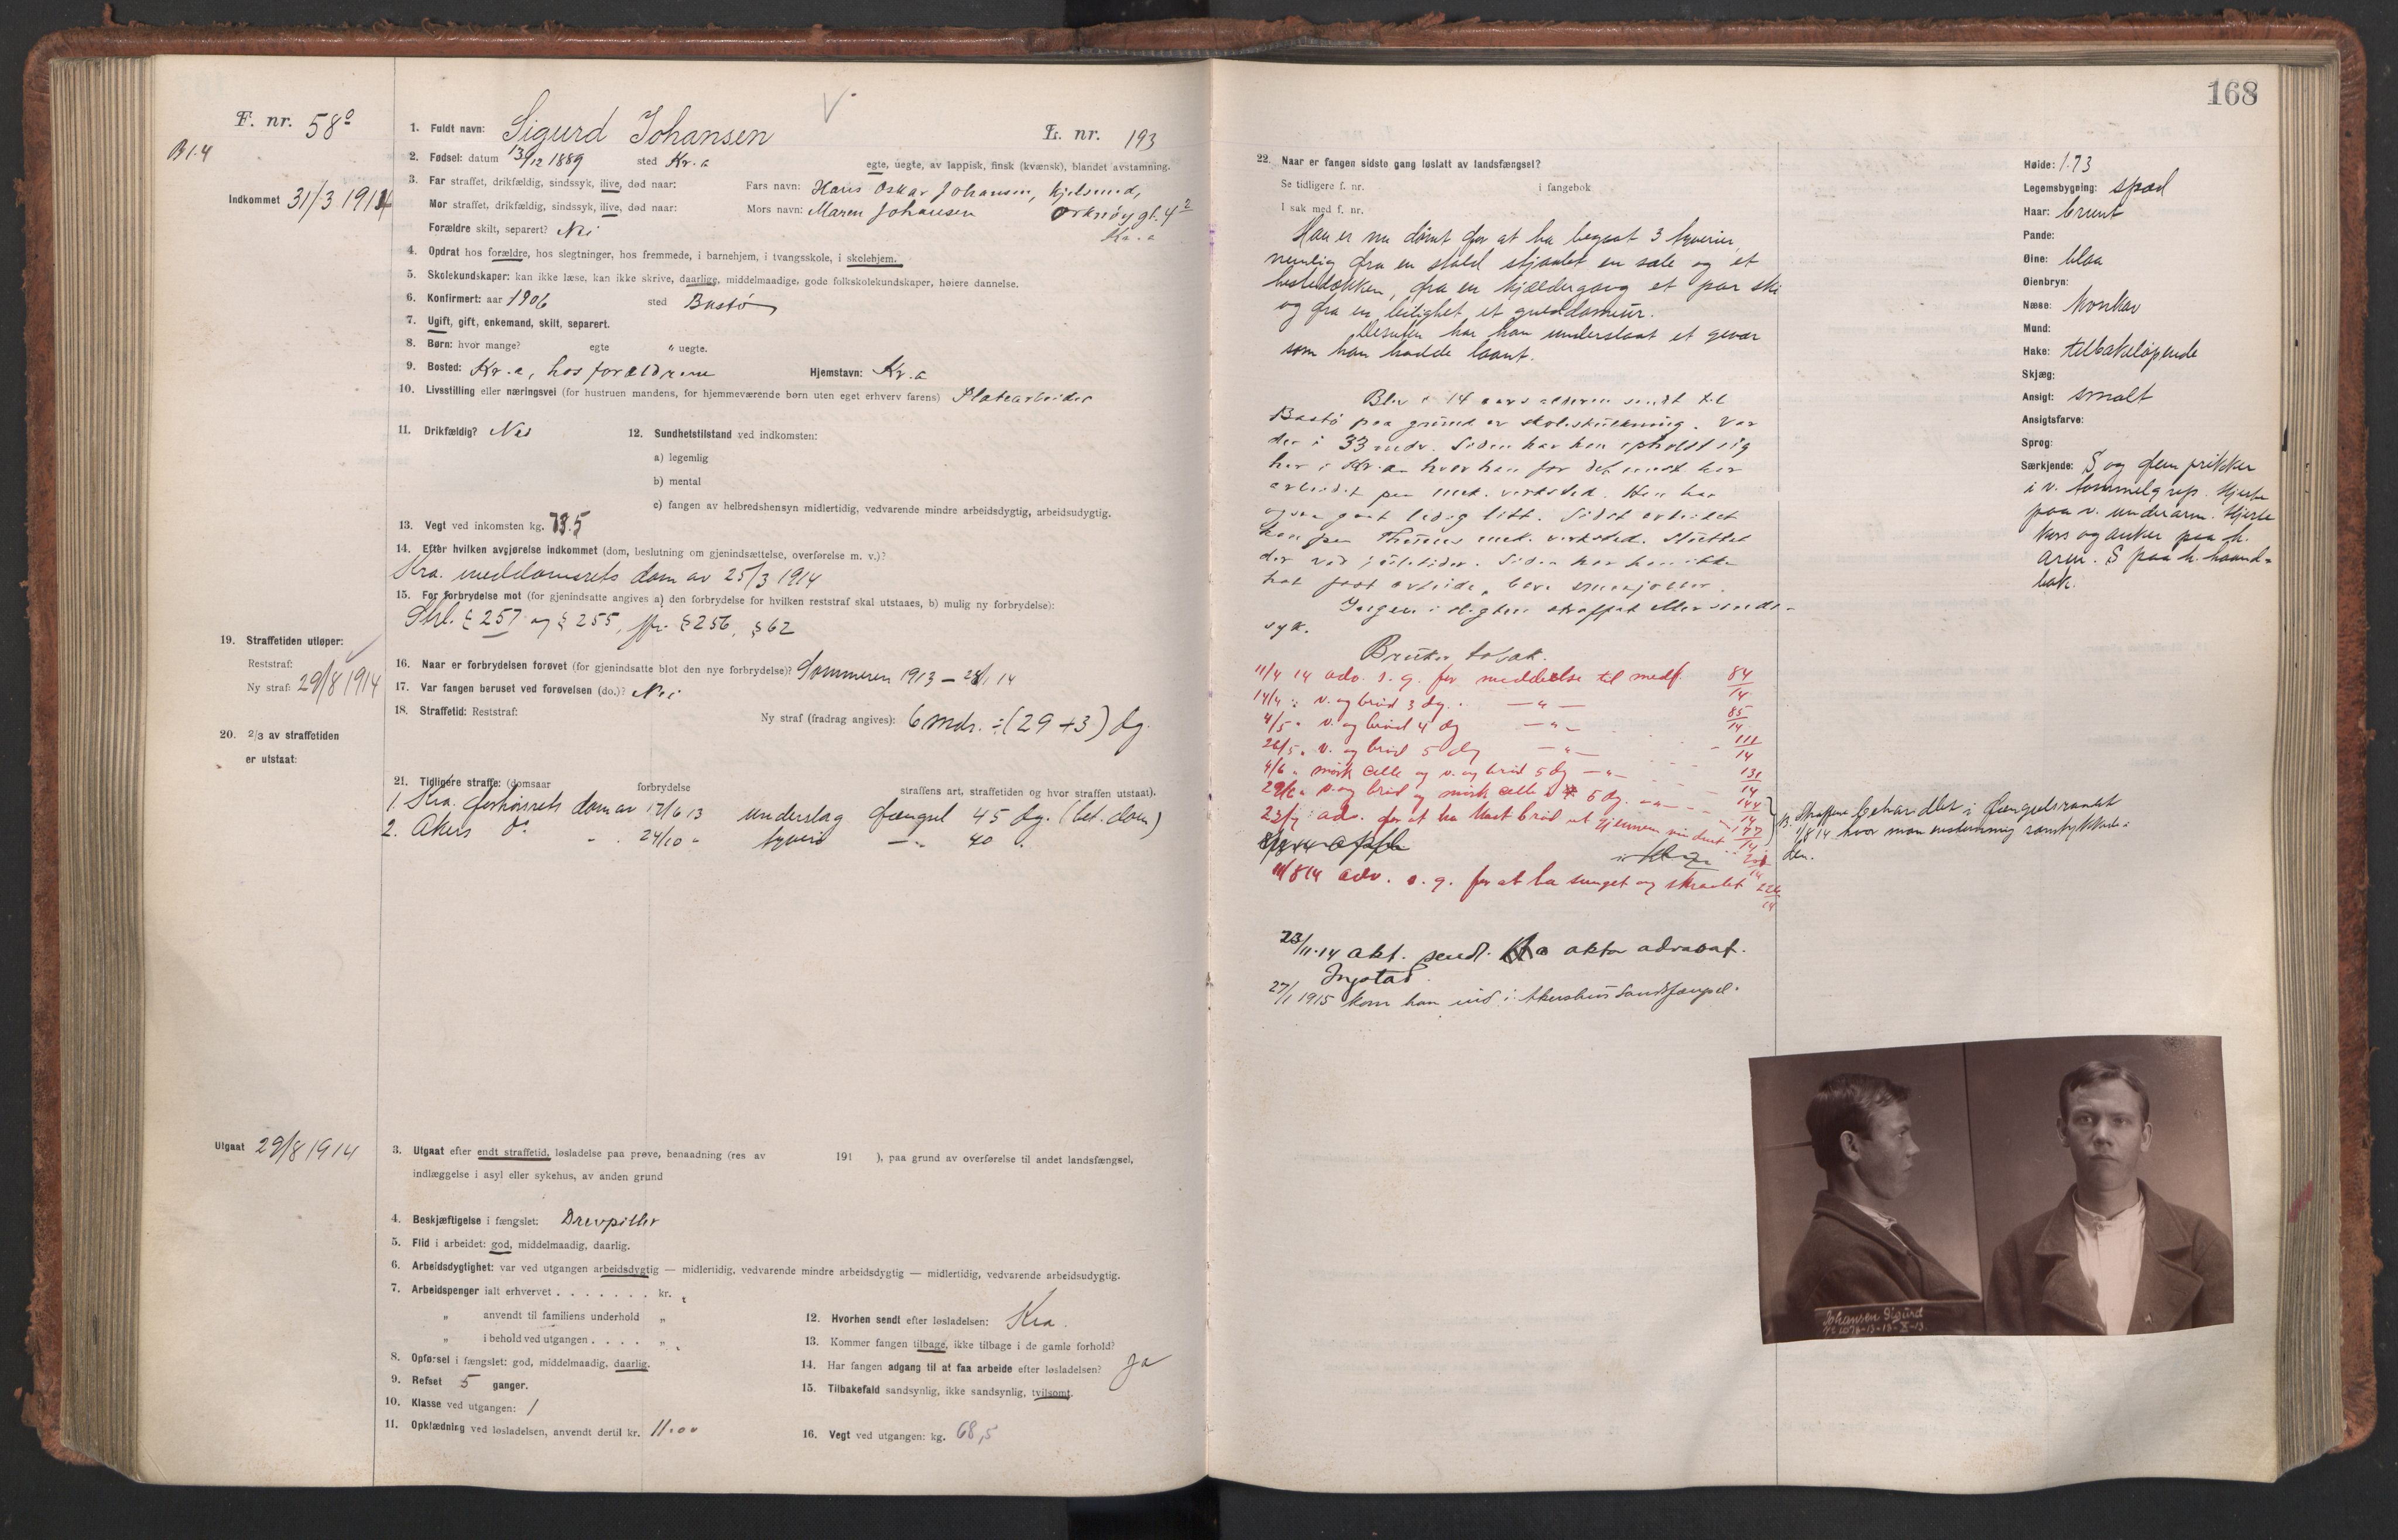 F. nr. 58a
B 1.4
Indkommet 31/3 1914
1. Fuldt navn: Sigurd Johansen
L. nr. 193
2. Fødsel: datum 13/12 1889 sted Kr.a
egte, uegte, av lappisk, finsk (kvænsk), blandet avstamning.
3. Far straffet, drikfældig, sindssyk, ilive, død naar: Fars navn: Hans Oskar Johansen, hjelsmed,
Mor straffet, drikfældig, sindssyk, ilive, død naar: Mors navn: Maren Johansen Orknøygt. 4²
Kr.a
Forældre skilt, separert? Nei
4. Opdrat hos forældre, hos slegtninger, hos fremmede, i barnehjem, i tvangsskole, i skolehjem.
5. Skolekundskaper: kan ikke læse, kan ikke skrive, daarlige, middelmaadige, gode folkskolekundskaper, høiere dannelse.
6. Konfirmert: aar 1906 sted Bastø
7. Ugift, gift, enkemand, skilt, separert.
8. Børn: hvor mange? egte " uegte.
9. Bosted: Kr.a, hos forældrene Hjemstavn: Kr.a
10. Livsstilling eller næringsvei (for hustruen mandens, for hjemmeværende børn uten eget erhverv farens) Platearbeider
11. Drikfældig? Nei
12. Sundhetstilstand ved indkomsten:
a) legemlig
b) mental
c) fangen av helbredshensyn midlertidig, vedvarende mindre arbeidsdygtig, arbeidsudygtig.
13. Vegt ved inkomsten kg. 73.5
14. Efter hvilken avgjørelse indkommet (dom, beslutning om gjenindsættelse, overførelse m. v.)?
Kra. meddomsrets dom av 25/3 1914
15. For forbrydelse mot (for gjenindsatte angives a) den forbrydelse for hvilken reststraf skal utstaaes, b) mulig ny forbrydelse):
Strl. § 257 og § 255, jfr. § 256, § 62
19. Straffetiden utløper:
Reststraf:
Ny straf: 29/8 1914
16. Naar er forbrydelsen forøvet (for gjenindsatte blot den nye forbrydelse)? Sommeren 1913 – 28/1 14
17. Var fangen beruset ved forøvelsen (do.)? Nei
18. Straffetid: Reststraf: Ny straf (fradrag angives): 6 mdr. ÷ (29 + 3) dg.
20. 2/3 av straffetiden
er utstaat:
21. Tidligere straffe: (domsaar forbrydelse straffens art, straffetiden og hvor straffen utstaat).
1. Kra. forhørsrets dom av 17/6 13 underslag fængsel 45 dg. (bet. dom)
2. Akers do - . 24/10 - tyveri — " - 40 .
Utgaat 29/8 1914
3. Utgaat efter endt straffetid, løsladelse paa prøve, benaadning (res av 191 ), paa grund av overførelse til andet landsfængsel,
indlæggelse i asyl eller sykehus, av anden grund
4. Beskjæftigelse i fængslet: Drevpiller
5. Flid i arbeidet: god, middelmaadig, daarlig.
6. Arbeidsdygtighet: var ved utgangen arbeidsdygtig — midlertidig, vedvarende mindre arbeidsdygtig — midlertidig, vedvarende arbeidsudygtig.
7. Arbeidspenger ialt erhvervet . . . . . . . kr.
" anvendt til familiens underhold "
" i behold ved utgangen . . . . "
8. Opførsel i fængslet: god, middelmaadig, daarlig.
9. Refset 5 ganger.
10. Klasse ved utgangen: 1
11. Opklædning ved løsladelsen, anvendt dertil kr. 11.00
12. Hvorhen sendt efter løsladelsen: Kra.
13. Kommer fangen tilbage, ikke tilbage i de gamle forhold?
14. Har fangen adgang til at faa arbeide efter løsladelsen? Ja
15. Tilbakefald sandsynlig, ikke sandsynlig, tvilsomt.
16. Vegt ved utgangen: kg. 68,5
168
22. Naar er fangen sidste gang løslatt av landsfængsel?
Se tidligere f. nr. i fangebok
I sak med f. nr.
Han er nu dømt for at ha begaat 3 tyverier,
nemlig fra en stald stjaalet en sæle og et
hestedækken, fra en kjældergang et par ski
og fra en leilighet et guldarmur.
Desuten har han underslaat et gevær
som han hadde laant.
Blev i 14 aars alderen sendt til
Bastø paa grund av skoleskulkning. Var
der i 33 mdr. Siden har han opholdt sig
her i Kr.a hvor han for det mest har
arbeidet paa mek. verksted. Han har
ogsaa gaat ledig litt. Sidst arbeidet
han paa Thunes mek. verksted. Sluttet
der ved juletider. Siden har han ikke
hat fast arbeide, bare smaajobber.
Ingen i slegten straffet eller sinds-
syk.
Bruker tobak.
11/4 14 adv. s. g. for meddelelse til medf. 84/14
14/4 : v. og brød 3 dg. . — " — 85/14
4/5 " v. og brød 4 dg — " — 111/14
26/5 " v. og brød 5 dg — " — 131/14
4/6 " mørk celle og v. og brød 5 dg — " — 144/14
29/6 " v. og brød og mørk celle 5 dg. — " — 177/14
23/7 : adv. for at ha kast brød ut gjennem vinduet
11/8 14 adv. s. g. for at ha sunget og skraalet 226/14
B. Straffene behandlet i fængselsraadet
1/8 14 hvor man enstemmig samtykkede i
den.
23/11-14 akt. sendt. aktor advocat.
Ingstad.
27/1 1915 kom han ind i Akershus landsfængsel.
Høide: 1.73
Legemsbygning: spæd
Haar: brunt
Pande:
Øine: blaa
Øienbryn:
Næse: konkav
Mund:
Hake: tilbakeløpende
Skjæg:
Ansigt: smalt
Ansigtsfarve:
Sprog:
Særkjende: S og fem prikker
i v. tommelgrep. Hjerte
paa v. underarm. Hjerte
kors og anker paa h.
arm. S paa h. haand-
bak.
Johansen Sigurd